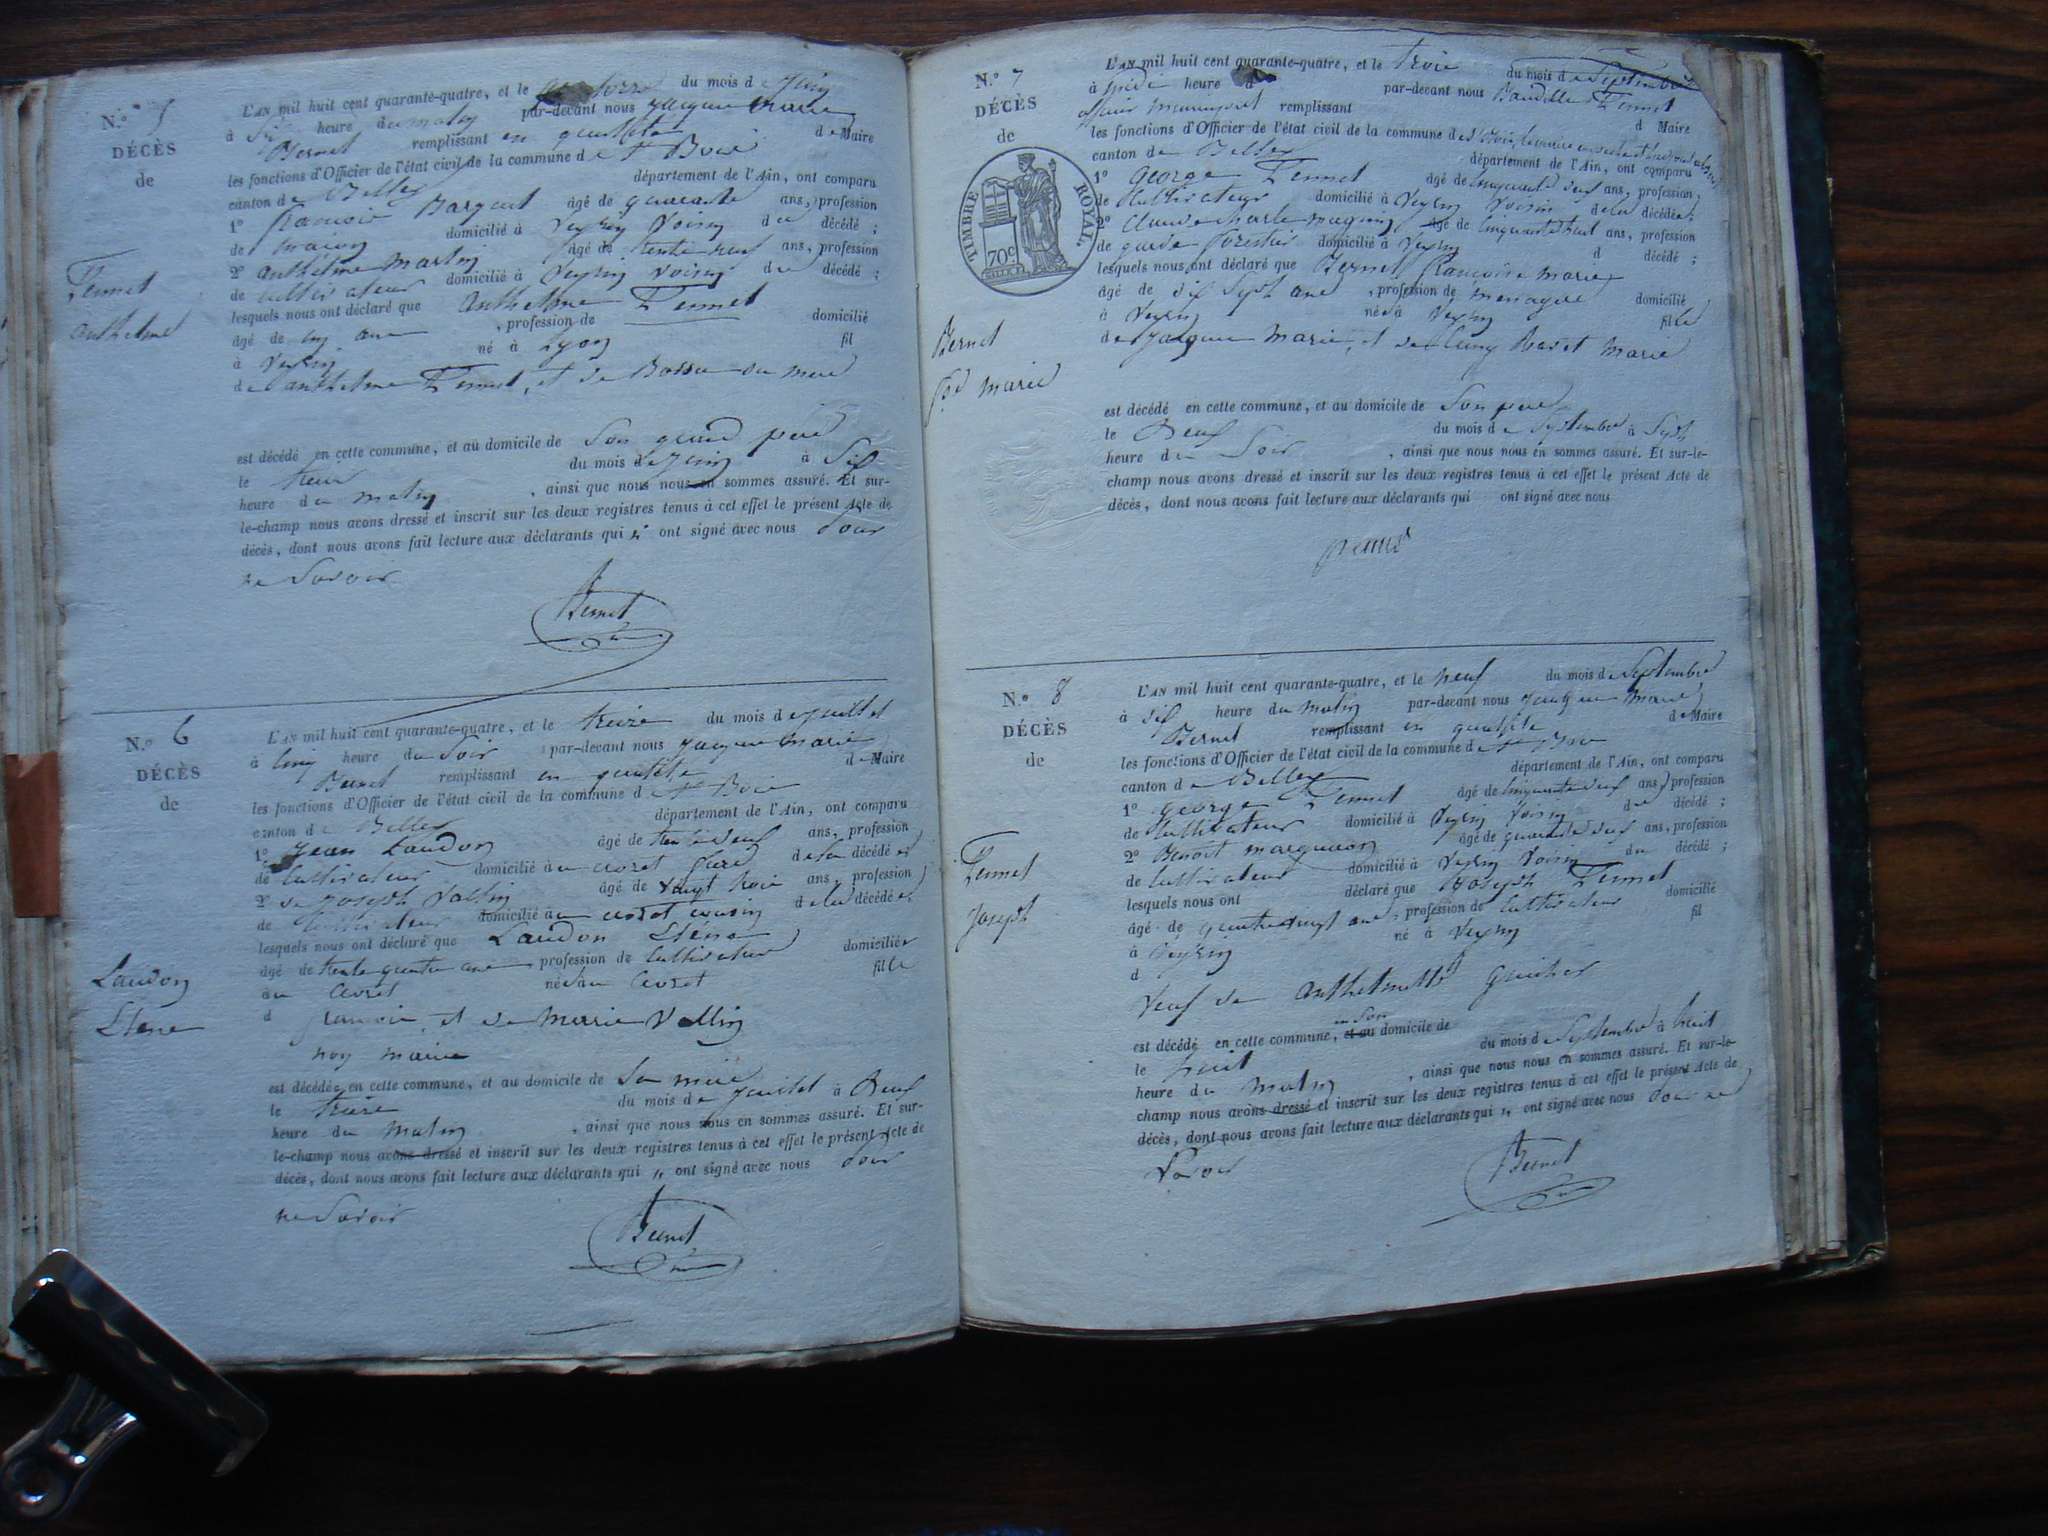 N.º 5
DÉCÈS
de
Fennet
anthelme
L'AN mil huit cent quarante-quatre, et le quatorze du mois de juin
à six heure du matin par-devant nous jacques marie
Bernet remplissant en qualité de Maire
les fonctions d'Officier de l'état civil de la commune de St Bois
canton de Belley département de l'Ain, ont comparu
1º françois âgé de quarante ans, profession
de maçon domicilié à Veyrin Voisin du décédé ;
2º anthelme martin âgé de trente neuf ans, profession
de cultivateur domicilié à Veyrin Voisin du décédé ;
lesquels nous ont déclaré que anthelme Fennet
âgé de , profession de domicilié
à Veyrin né à Lyon fil
de anthelme Fennet, et de
est décédé en cette commune, et au domicile de Son grand père
le treize du mois de juin à Six
heure du matin , ainsi que nous nous en sommes assuré. Et sur-
le-champ nous avons dressé et inscrit sur les deux registres tenus à cet effet le présent Acte de
décès, dont nous avons fait lecture aux déclarants qui n' ont signé avec nous pour
ne Savoir
Bernet
N.º 6
DÉCÈS
de
Landon
L'AN mil huit cent quarante-quatre, et le treize du mois de juillet
à cinq heure du Soir par-devant nous jacques marie
Bernet remplissant en qualité de Maire
les fonctions d'Officier de l'état civil de la commune d St Bois
canton de Belley département de l'Ain, ont comparu
1º jean Landon âgé de ans, profession
de Cultivateur domicilié à au de la décédée
2º de joseph Vallin âgé de vingt trois ans, profession
de Cultivateur domicilié à au cousin de la décédée
lesquels nous ont déclaré que Landon
âgé de trente quatre ans, profession de Cultivateur domiciliée
au née au fille
d françois, et de Marie Vallin
non mariée
est décédée en cette commune, et au domicile de Sa mère
le treize du mois de juillet à Neuf
heure du Matin , ainsi que nous nous en sommes assuré. Et sur-
le-champ nous avons dressé et inscrit sur les deux registres tenus à cet effet le présent Acte de
décès, dont nous avons fait lecture aux déclarants qui n' ont signé avec nous pour
ne Savoir
Bernet
N.º 7
DÉCÈS
de
TIMBRE ROYAL
70c
Bernet
fse marie
L'AN mil huit cent quarante-quatre, et le trois du mois de Septembre
à heure d par-devant nous Fennet
remplissant d Maire
les fonctions d'Officier de l'état civil de la commune de St Bois, le maire
canton de Belley département de l'Ain, ont comparu
1º George Fennet âgé de cinquante neuf ans, profession
de Cultivateur domicilié à Veyrin Voisin de la décédée ;
2º Claude Charle âgé de cinquante huit ans, profession
de garde forestier domicilié à Veyrin d décédé ;
lesquels nous ont déclaré que Bernet françoise marie
âgé de dix Sept ans , profession de menagere domicilié
à Veyrin née à Veyrin fille
de jacques marie, et de Marie
est décédé en cette commune, et au domicile de Son père
le Deux du mois de Septembre à Sept
heure du Soir , ainsi que nous nous en sommes assuré. Et sur-le-
champ nous avons dressé et inscrit sur les deux registres tenus à cet effet le présent Acte de
décès, dont nous avons fait lecture aux déclarants qui ont signé avec nous
N.º 8
DÉCÈS
de
Fennet
Joseph
L'AN mil huit cent quarante-quatre, et le neuf du mois de Septembre
à six heure du matin par-devant nous jacques marie
Bernet remplissant en qualité de Maire
les fonctions d'Officier de l'état civil de la commune d St Bois
canton de Belley département de l'Ain, ont comparu
1º George Fennet âgé de cinquante neuf ans, profession
de Cultivateur domicilié à Veyrin Voisin du décédé ;
2º Benoit âgé de quarante neuf ans, profession
de Cultivateur domicilié à Veyrin Voisin du décédé ;
lesquels nous ont déclaré que Joseph Fennet
âgé de quatre vingt ans, profession de Cultivateur domicilié
à Veyrin né à Veyrin fil
d
Veuf de
est décédé en cette commune, et au en son domicile de
le huit du mois de Septembre à huit
heure du Matin , ainsi que nous nous en sommes assuré. Et sur-le-
champ nous avons dressé et inscrit sur les deux registres tenus à cet effet le présent Acte de
décès, dont nous avons fait lecture aux déclarants qui n' ont signé avec nous pour ne
Savoir
Bernet